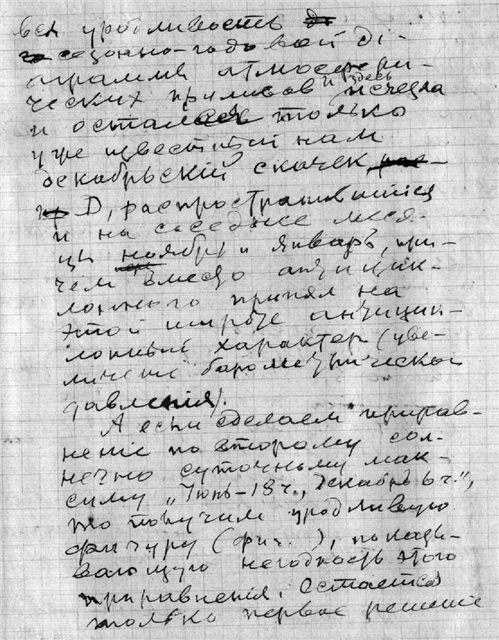 вся уродливость
сезонно-годовой ді-
аграммы атмосфери-
ческих приливов и здесь исчезла
и остался только
уже известный нам
декабрьскій скачек
D, распространившійся
и на соседние меся-
цы ноябрь и январь, при-
чем вместо антицик-
лоннаго принял на
этой широте антицик-
лонный характер (уве-
личеніе барометрическаго
давленія).
А если сделаем прирав-
неніе по второму сол-
нечно суточному мак-
симу „Іюнь-18 ч., Декабрь 6 ч.",
то получим уродливую
фигуру (фиг. ), показы-
вающую негодность этого
приравненія. Остается
только первое решеніе